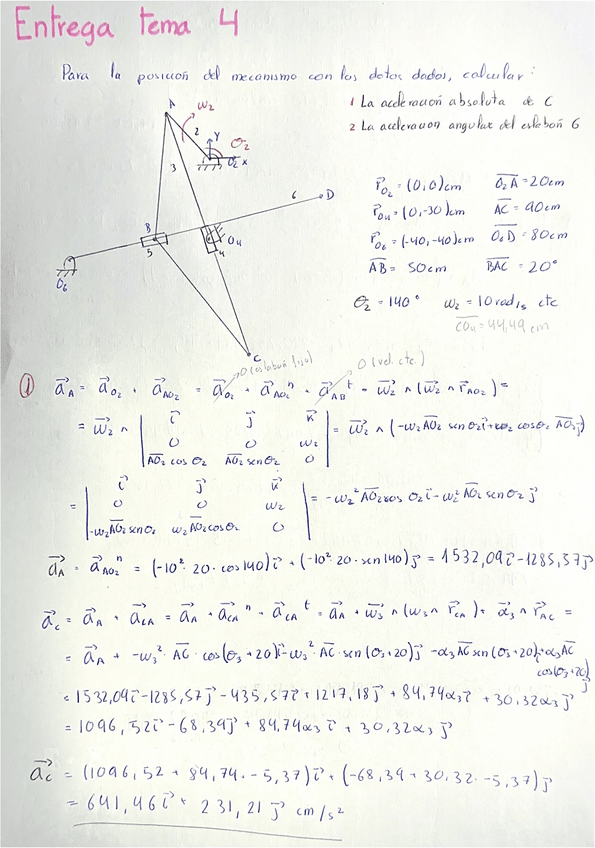 Entrega tema 4
Para la posición del mecanismo con los datos dados, calcular:
1 La aceleración absoluta de C
2 La aceleración angular del eslabón 6
A
ω₂
2
Y
θ₂
O₂ X
3
6
D
B
5
O₄
4
O₆
C
r⃗O₂ = (0,0)cm O₂A = 20cm
r⃗O₄ = (0,-30)cm AC = 90cm
r⃗O₆ = (-40,-40)cm O₆D = 80cm
AB = 50cm BAC = 20°
θ₂ = 140° ω₂ = 10 rad/s cte
CO₄ = 44,49 cm
0 (eslabón fijo) 0 (vel. cte.)
① a⃗A = a⃗O₂ + a⃗AO₂ = a⃗O₂ + a⃗AO₂ⁿ + a⃗ABᵗ = ω⃗₂ ∧ (ω⃗₂ ∧ r⃗AO₂) =
= ω⃗₂ ∧ | i⃗ j⃗ k⃗ | = ω⃗₂ ∧ (-ω₂ AO₂ sen θ₂ i⃗ + ω₂ cos θ₂ AO₂ j⃗)
0 0 ω₂
AO₂ cos θ₂ AO₂ sen θ₂ 0
= | i⃗ j⃗ k⃗ | = -ω₂² AO₂ cos θ₂ i⃗ - ω₂² AO₂ sen θ₂ j⃗
0 0 ω₂
-ω₂ AO₂ sen θ₂ ω₂ AO₂ cos θ₂ 0
a⃗A = a⃗AO₂ⁿ = (-10² · 20 · cos 140) i⃗ + (-10² · 20 · sen 140) j⃗ = 1532,09 i⃗ - 1285,57 j⃗
a⃗c = a⃗A + a⃗CA = a⃗A + a⃗CAⁿ + a⃗CAᵗ = a⃗A + ω⃗₃ ∧ (ω₃ ∧ r⃗CA) + α⃗₃ ∧ r⃗AC =
= a⃗A + -ω₃² · AC · cos(θ₃ + 20) i⃗ - ω₃² · AC · sen(θ₃ + 20) j⃗ - α₃ AC sen(θ₃ + 20) i⃗ + α₃ AC
cos(θ₃ + 20) j⃗
= 1532,09 i⃗ - 1285,57 j⃗ - 435,57 i⃗ + 1217,18 j⃗ + 84,74 α₃ i⃗ + 30,32 α₃ j⃗
= 1096,52 i⃗ - 68,39 j⃗ + 84,74 α₃ i⃗ + 30,32 α₃ j⃗
a⃗c = (1096,52 + 84,74 · -5,37) i⃗ + (-68,39 + 30,32 · -5,37) j⃗
= 641,46 i⃗ + 231,21 j⃗ cm/s²